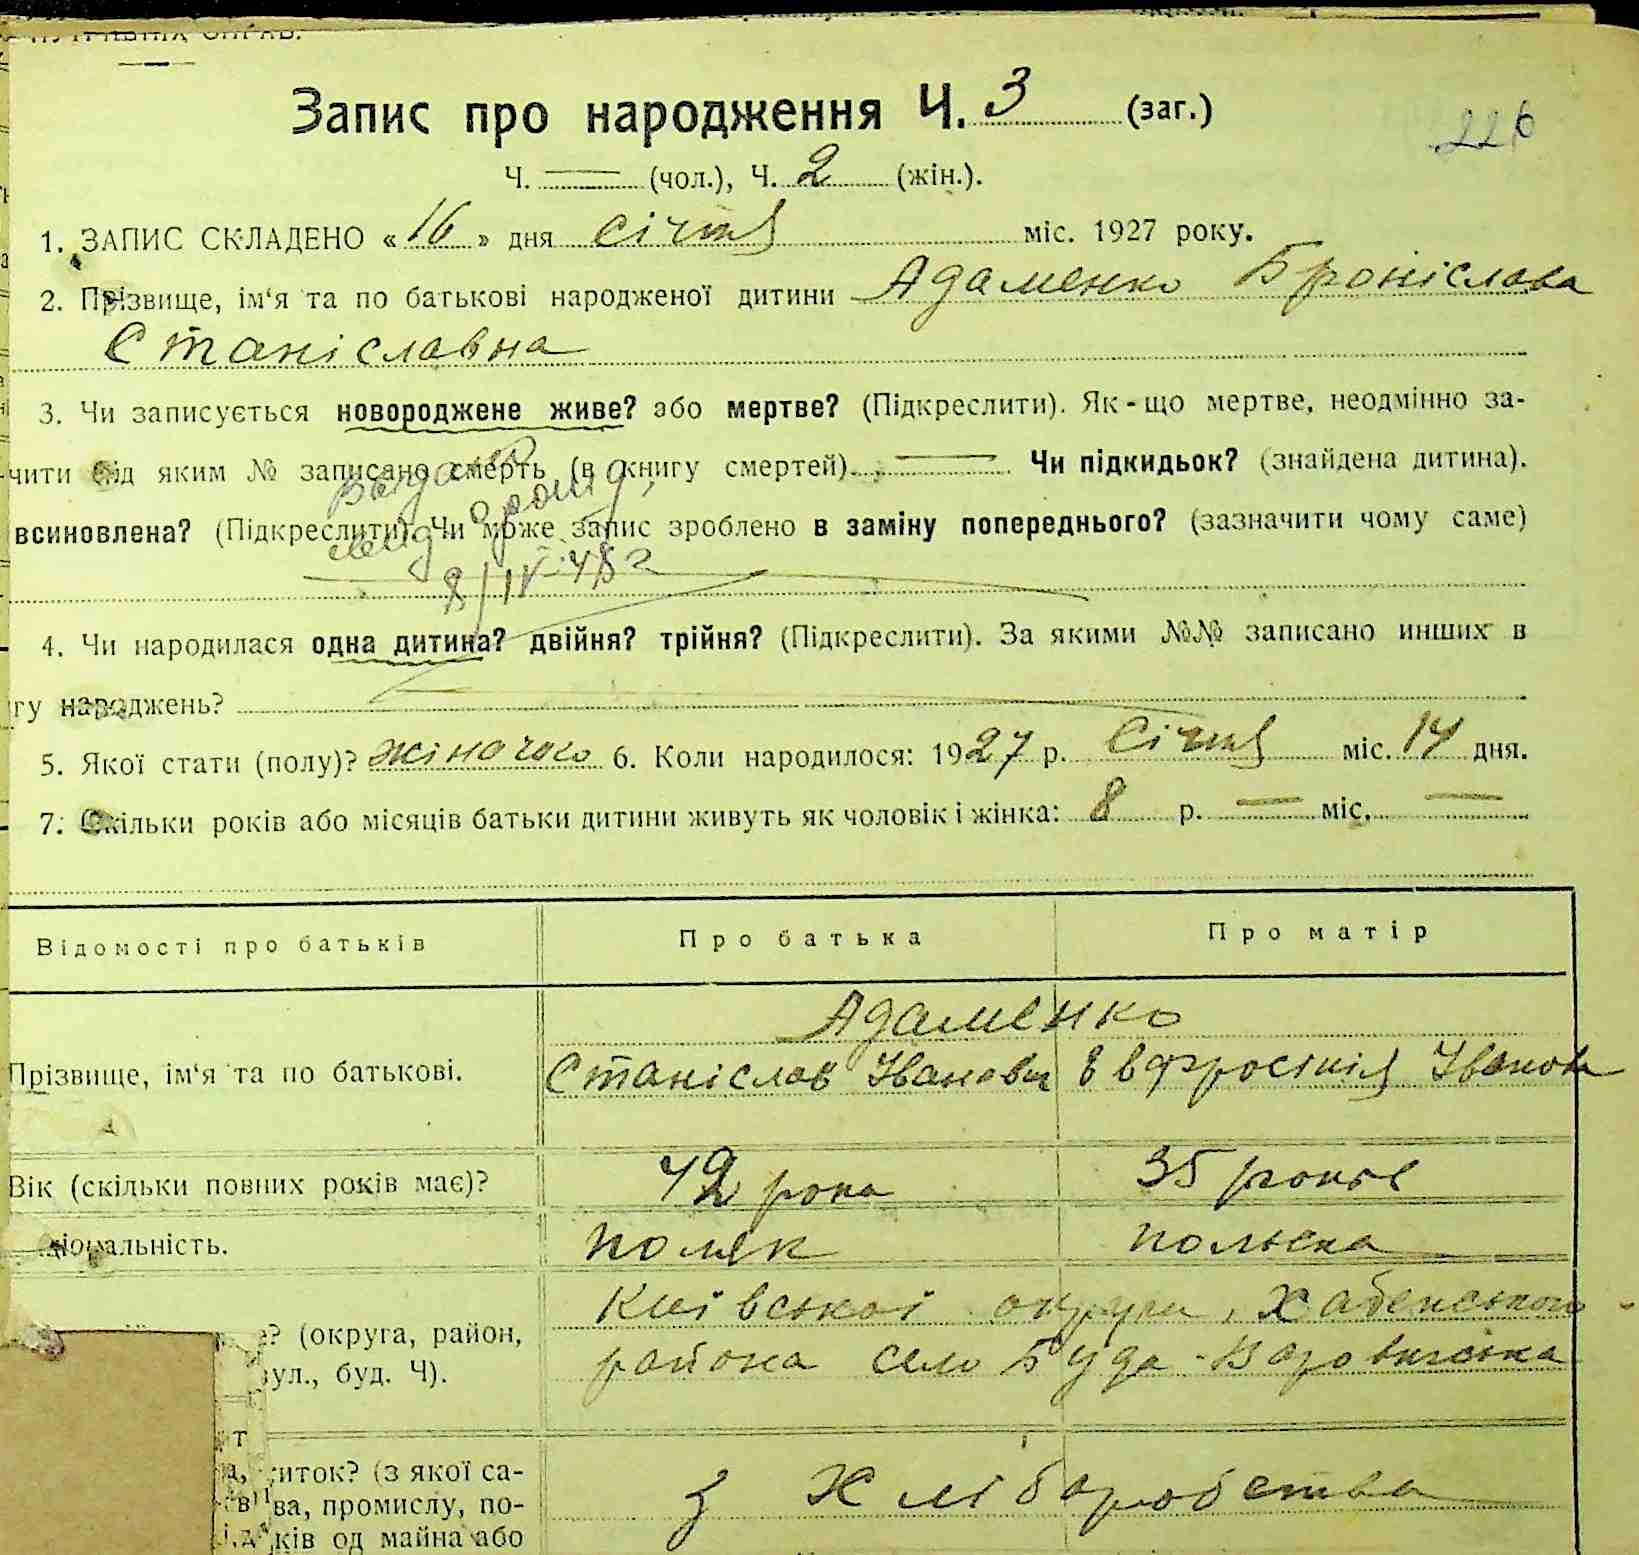 Запис про народження Ч. 3 (заг.)
226
Ч. — (чол.), Ч. 2 (жін.).
1. ЗАПИС СКЛАДЕНО «16» дня січня міс. 1927 року.
2. Прізвище, ім‘я та по батькові народженої дитини Адаменко Броніслава
Станіславна
3. Чи записується новороджене живе? або мертве? (Підкреслити). Як-що мертве, неодмінно за-
чити під яким № записано смерть (в книгу смертей). — Чи підкидьок? (знайдена дитина).
всиновлена? (Підкреслити). Чи може запис зроблено в заміну попереднього? (зазначити чому саме)
8/IV-48 г
4. Чи народилася одна дитина? двійня? трійня? (Підкреслити). За якими №№ записано инших в
гу народжень?
5. Якої стати (полу)? жіночого 6. Коли народилося: 1927 р. Січня міс. 14 дня.
7. Скільки років або місяців батьки дитини живуть як чоловік і жінка: 8 р. — міс. —
Відомості про батьків Про батька Про матір
Адаменко
Прізвище, ім‘я та по батькові. Станіслав Іванович Евфросінія Іванов
Вік (скільки повних років має)? 42 рока 35 років
ціональність. поляк полька
Київської округи, Хабенського
? (округа, район, района село Буда-Воровичська
ул., буд. Ч).
иток? (з якої са- з Хліборобства
ва, промислу, по-
ків од майна або